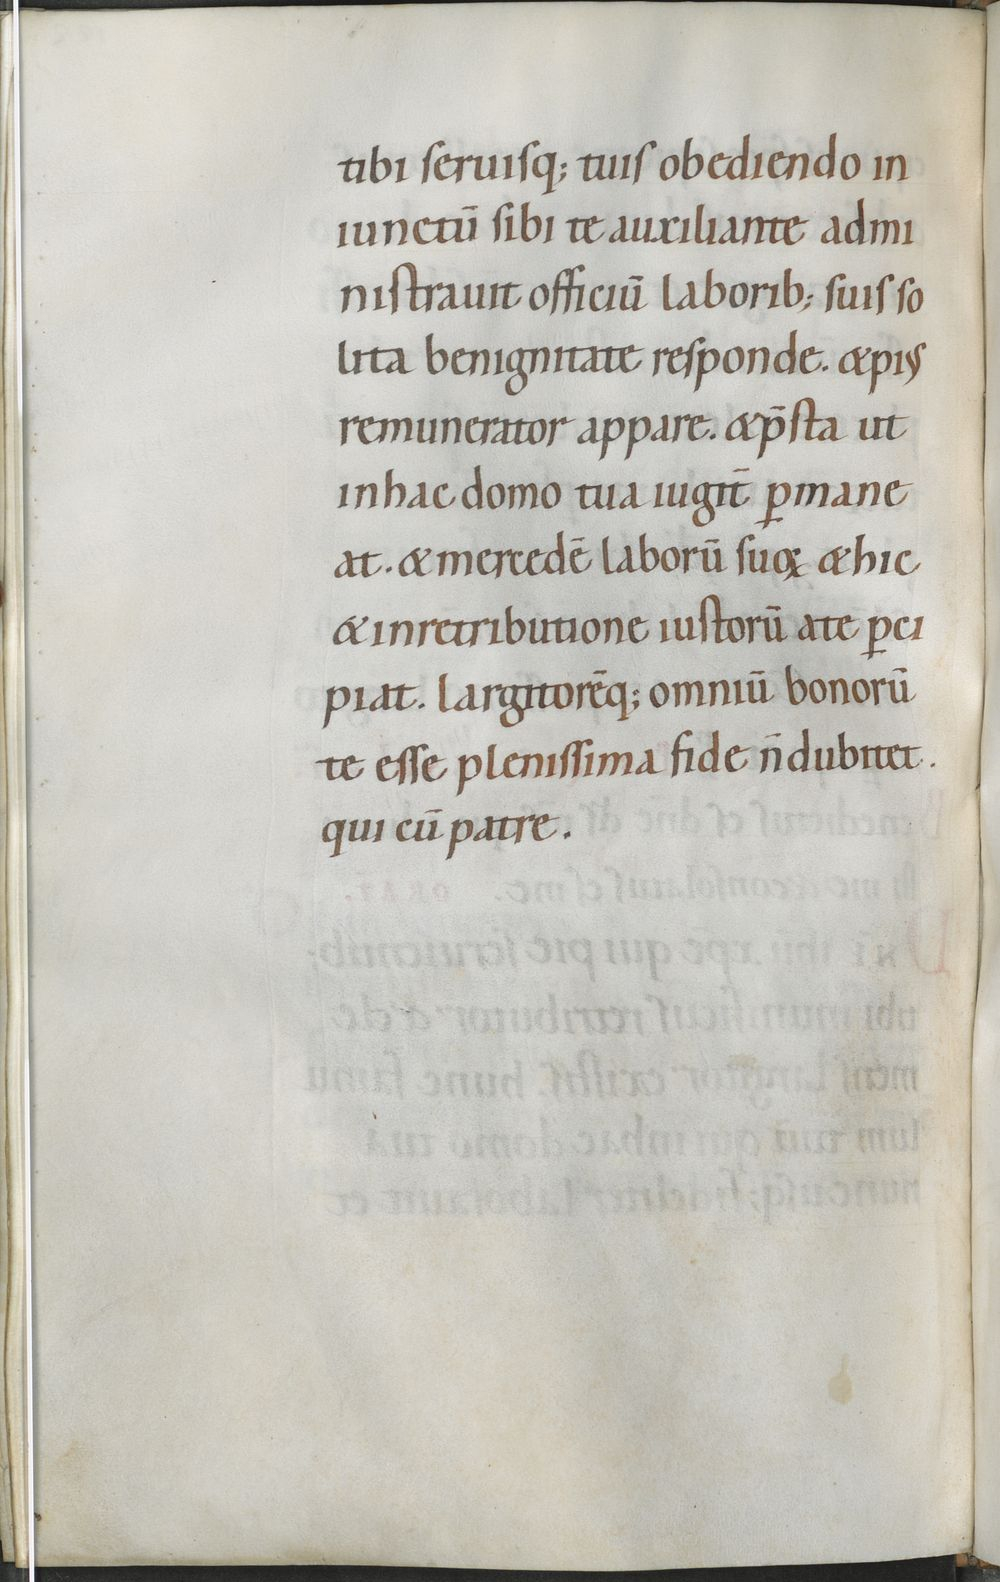 tibi seruisq; tuis obediendo in
iunctū sibi te auxiliante admi
nistrauit officiū laborib; suis so
lita benignitate responde. & piꝰ
remunerator appare. & p̄sta ut
in hac domo tua iugit̄ ꝑmane
at. & mercedē laborū suoꝝ & hic
& in retributione iustorū a te ꝑci
piat. largitorēq; omniū bonorū
te esse plenissima fide n̄ dubitet.
qui cū patre.